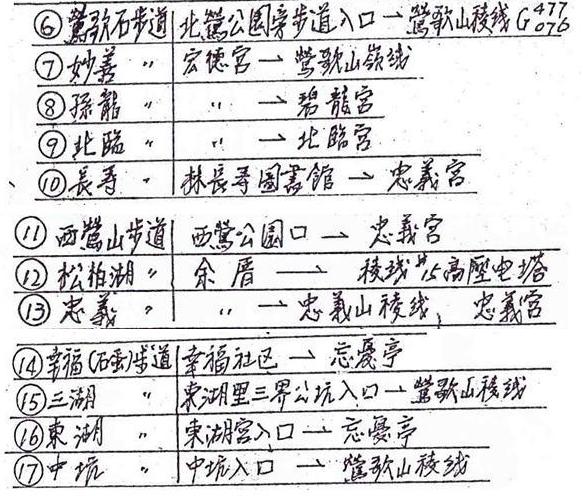 ⑥鶯歌石步道 北鶯公園旁步道入口→鶯歌山稜线 G477 076
⑦妙善 〃 宏德宮→鶯歌山嶺线
⑧孫龍 〃 〃 →碧龍宮
⑨北臨 〃 〃 →北臨宮
⑩長寿 〃 林長寿圖書館→忠義宮
⑪西鶯山步道 西鶯公園口→忠義宮
⑫松柏湖 〃 余厝→稜线#15高壓电塔
⑬忠義 〃 〃 →忠義山稜线, 忠義宮
⑭幸福(石蛋)步道 幸福社区→忘憂亭
⑮三湖 〃 東湖里三界公坑入口→鶯歌山稜线
⑯東湖 〃 東湖宮入口→忘憂亭
⑰中坑 〃 中坑入口→鶯歌山稜线